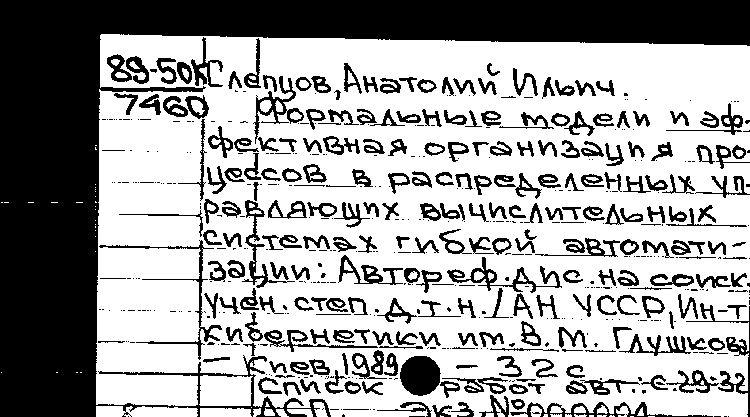 89-50К Слепцов, Анатолий Ильич.
7460 Формальные модели и эф-
фективная организация про-
цессов в распределенных уп-
равляющих вычислительных
системах гибкой автомати-
зации: Автореф. дис. на соиск.
учен. степ. д.т.н. / АН УССР, Ин-т
кибернетики им. В.М. Глушкова
— Киев, 1989 — 32 с
Список работ авт.: с.29-32
ДСП. Экз. №000001